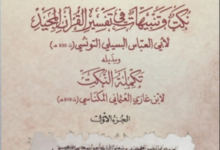 نكت وتنبيهات في تفسير القرآن المجيد
لأبي العباس البسيلي التونسي
وبذيله
تكملة النكت
لابن غازي العثماني المكناسي
الجزء الأول